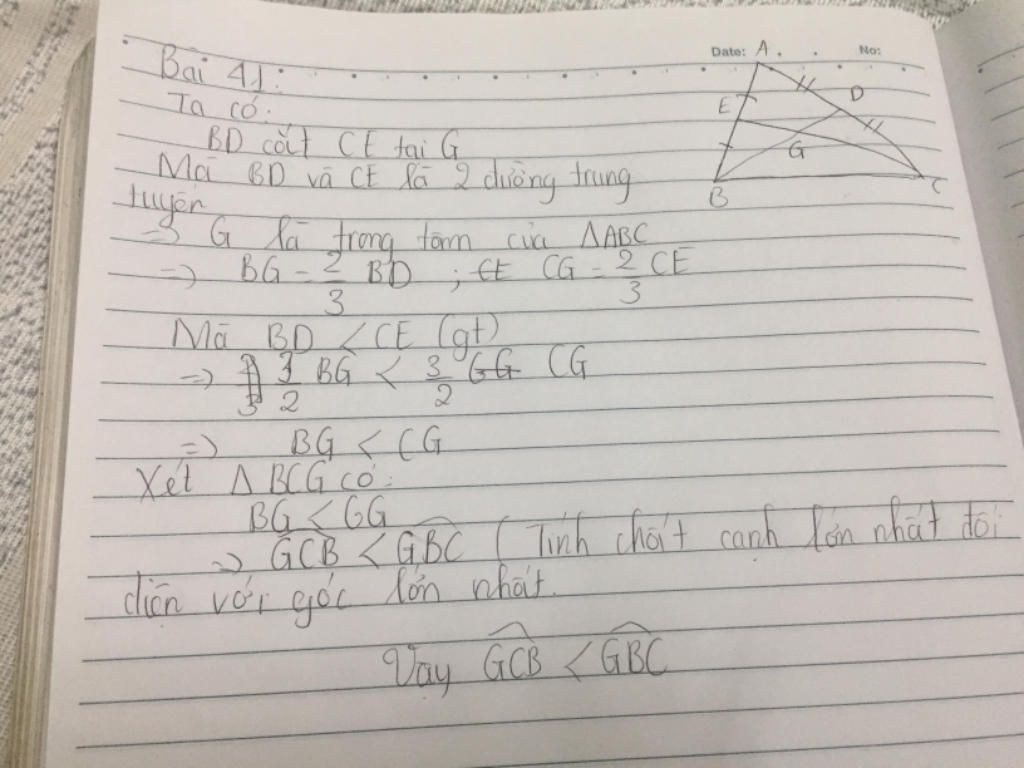 Date:
No:
Bài 41:
Ta có:
BD cắt CE tại G
Mà BD và CE là 2 đường trung
tuyến
=> G là trọng tâm của ΔABC
=> BG = 2/3 BD ; CE CG = 2/3 CE
Mà BD < CE (gt)
=> 3/2 BG < 3/2 GG CG
=> BG < CG
Xét Δ BCG có:
BG < GG
=> GCB < GBC (Tính chất cạnh lớn nhất đối
diện với góc lớn nhất.
Vậy GCB < GBC
A
E
D
G
B
C